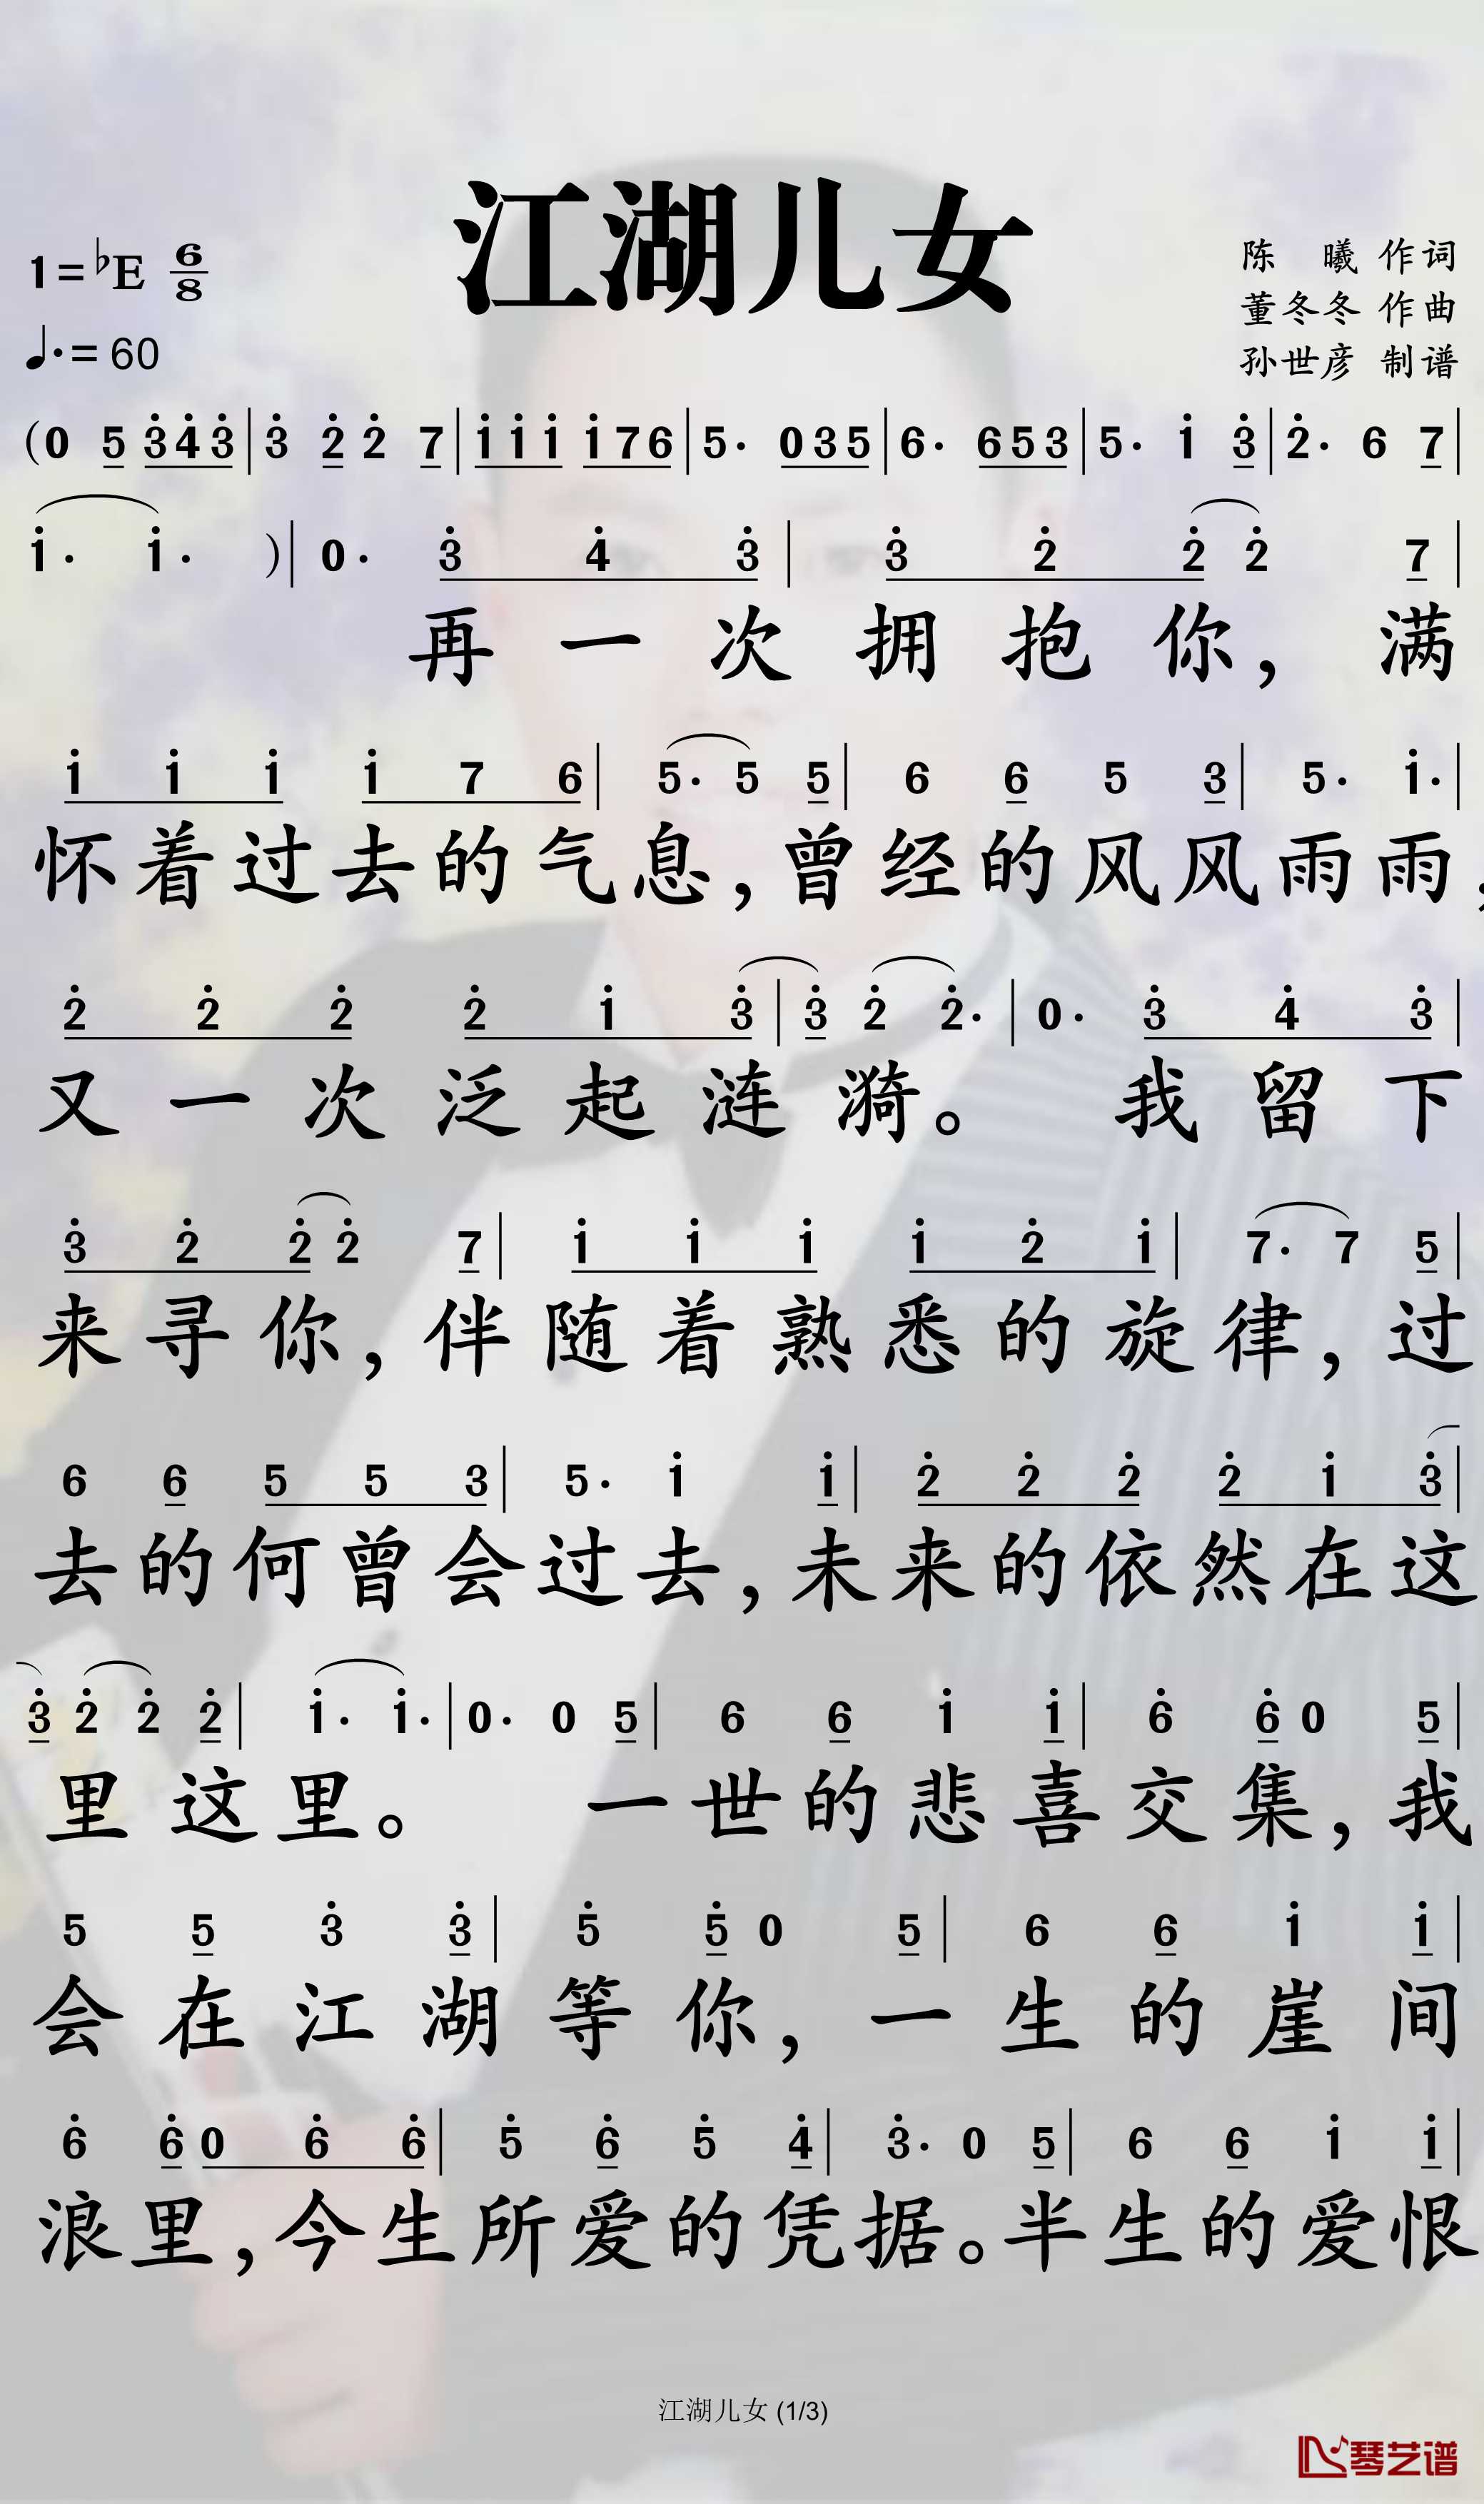 江湖儿女
1=♭E 6/8
♩.=60
陈 曦 作词
董冬冬 作曲
孙世彦 制谱
(0 5 3̇4̇3̇|3̇ 2̇ 2̇ 7|1̇1̇1̇ 1̇76|5· 035|6· 653|5· 1̇ 3̇|2̇· 6 7|
1̇· 1̇· )|0· 3̇ 4̇ 3̇|3̇ 2̇ 2̇ 2̇ 7|
再一次拥抱你，满
1̇ 1̇ 1̇ 1̇ 7 6|5· 5 5|6 6 5 3|5· 1̇·|
怀着过去的气息，曾经的风风雨雨，
2̇ 2̇ 2̇ 2̇ 1̇ 3̇|3̇ 2̇ 2̇·|0· 3̇ 4̇ 3̇|
又一次泛起涟漪。 我留下
3̇ 2̇ 2̇ 2̇ 7|1̇ 1̇ 1̇ 1̇ 2̇ 1̇|7· 7 5|
来寻你，伴随着熟悉的旋律，过
6 6 5 5 3|5· 1̇ 1̇|2̇ 2̇ 2̇ 2̇ 1̇ 3̇|
去的何曾会过去，未来的依然在这
3̇ 2̇ 2̇ 2̇|1̇· 1̇·|0· 0 5|6 6 1̇ 1̇|6̇ 6̇ 0 5̇|
里这里。 一世的悲喜交集，我
5 5 3̇ 3̇|5̇ 5̇ 0 5|6 6 1̇ 1̇|
会在江湖等你，一生的崖间
6̇ 6̇ 0 6̇ 6̇|5̇ 6̇ 5̇ 4̇|3̇· 0 5|6 6 1̇ 1̇|
浪里，今生所爱的凭据。半生的爱恨
江湖儿女 (1/3)
琴艺谱